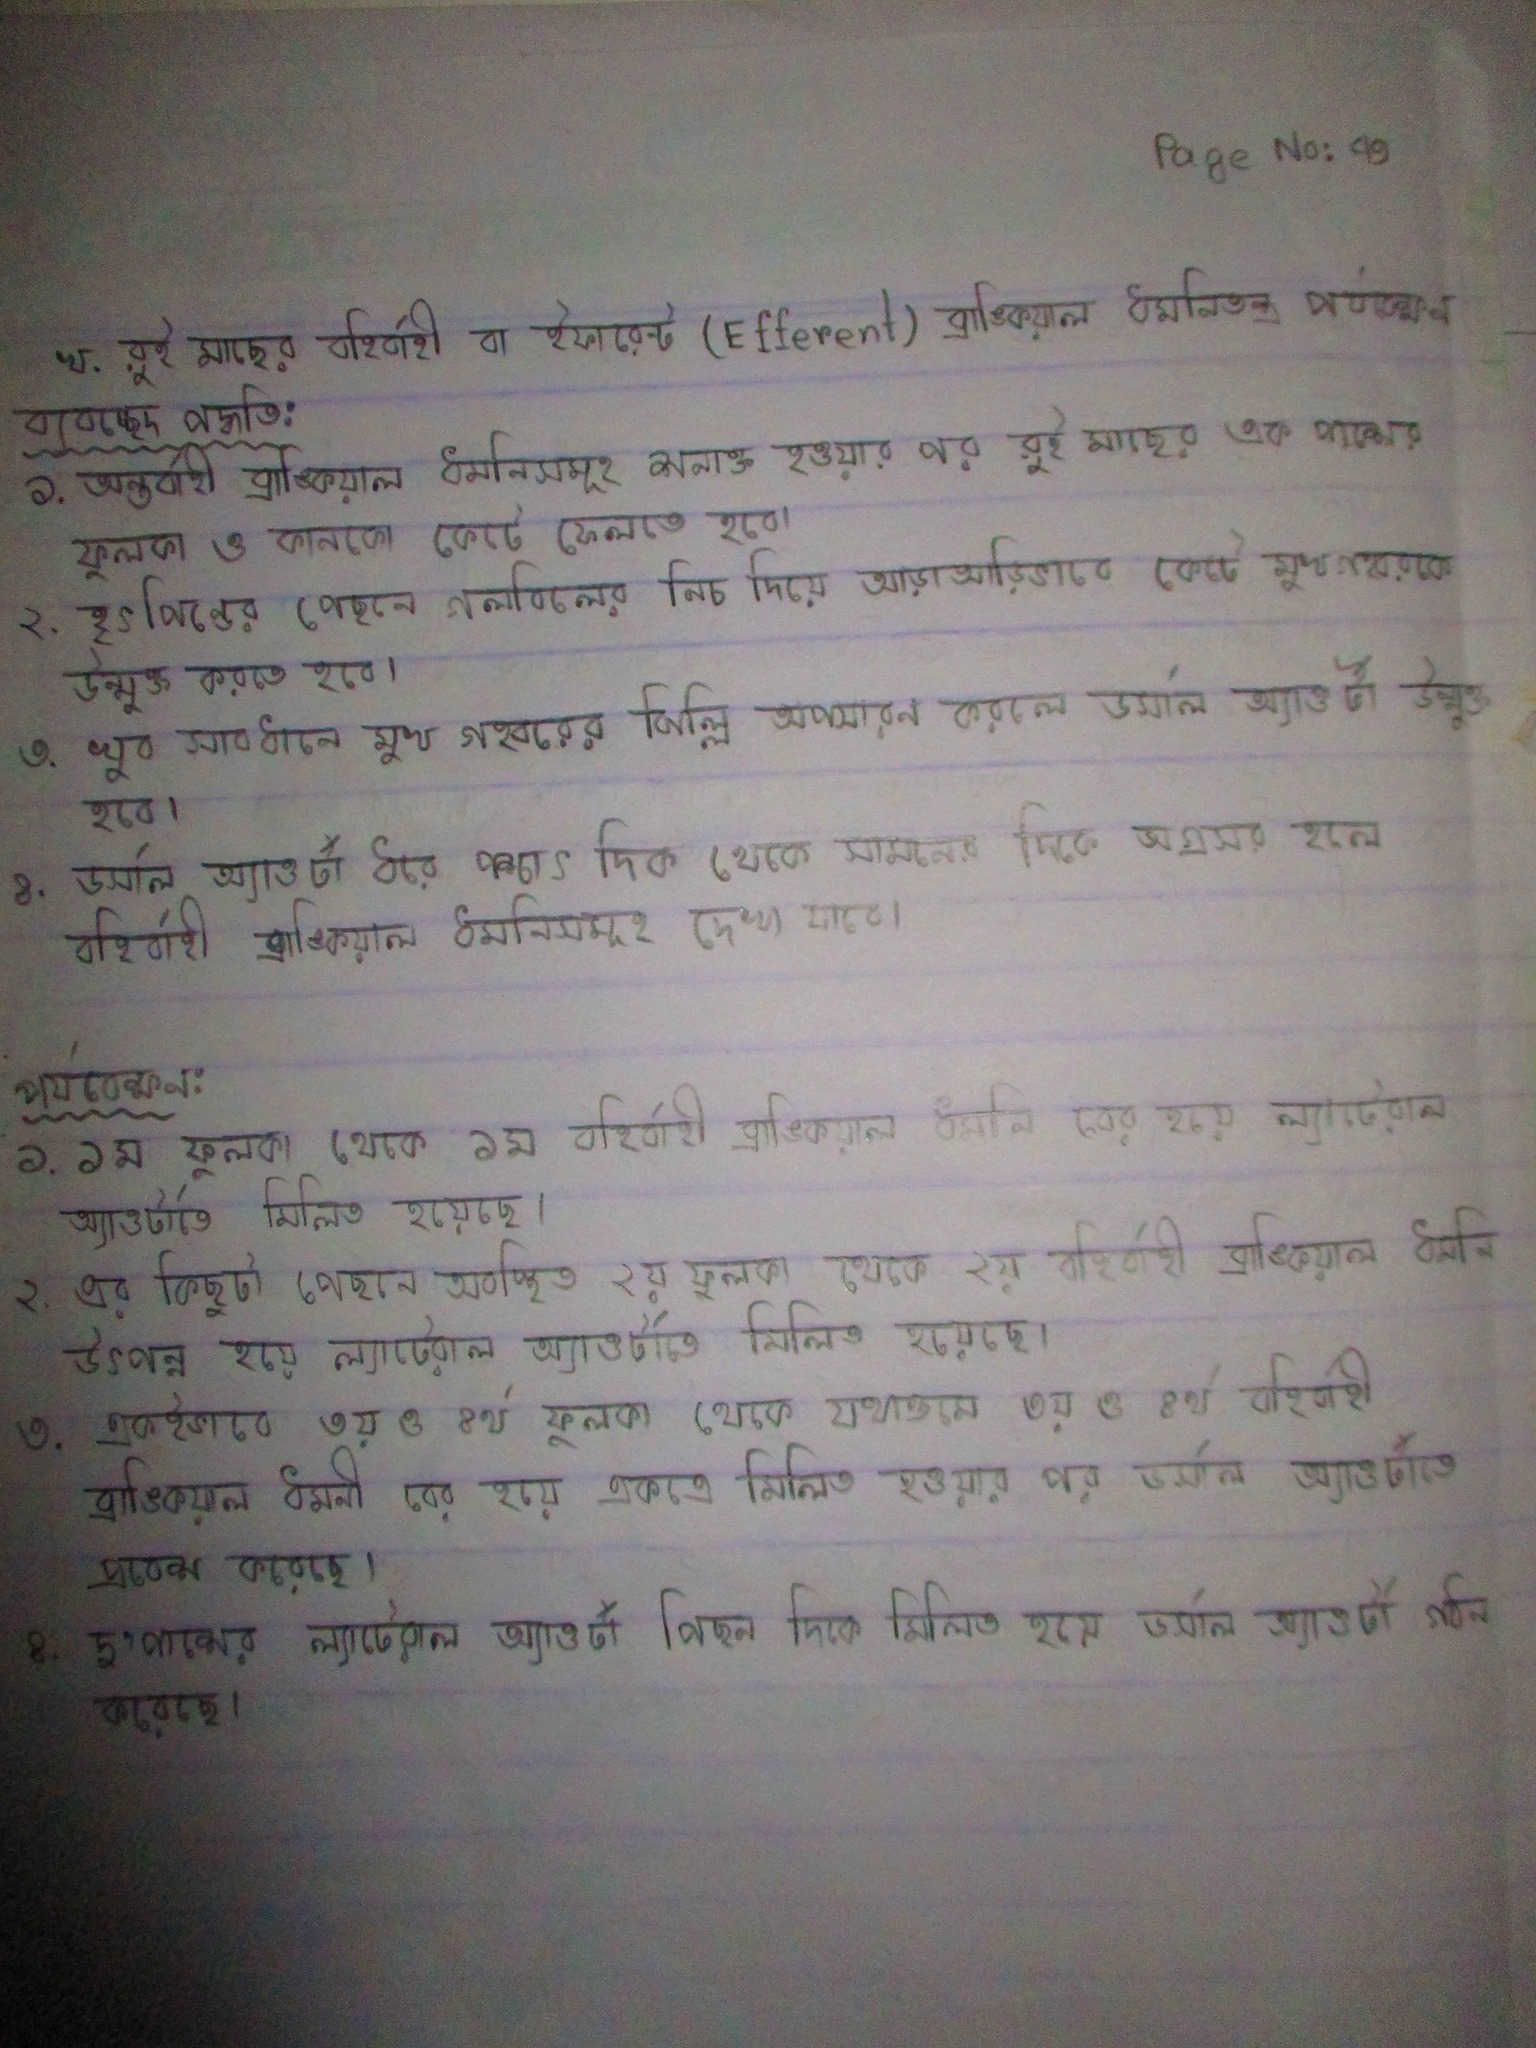 Page No: 49
খ. রুই মাছের বহির্বাহী বা ইফারেন্ট (Efferent) ব্রাঙ্কিয়াল ধমনিতন্ত্র পর্যবেক্ষন
ব্যবচ্ছেদ পদ্ধতি:
১. অন্তর্বাহী ব্রাঙ্কিয়াল ধমনিসমূহ শনাক্ত হওয়ার পর রুই মাছের এক পাশের
ফুলকা ও কানকো কেটে ফেলতে হবে।
২. হৃৎপিন্ডের পেছনে গলবিলের নিচ দিয়ে আড়াআড়িভাবে কেটে মুখগহ্বরকে
উন্মুক্ত করতে হবে।
৩. খুব সাবধানে মুখ গহ্বরের ঝিল্লি অপসারন করলে ডর্সাল অ্যাওর্টা উন্মুক্ত
হবে।
৪. ডর্সাল অ্যাওর্টা ধরে পশ্চাৎ দিক থেকে সামনের দিকে অগ্রসর হলে
বহির্বাহী ব্রাঙ্কিয়াল ধমনিসমূহ দেখা যাবে।
পর্যবেক্ষন:
১. ১ম ফুলকা থেকে ১ম বহির্বাহী ব্রাঙ্কিয়াল ধমনি বের হয়ে ল্যাটেরাল
অ্যাওর্টাতে মিলিত হয়েছে।
২. এর কিছুটা পেছনে অবস্থিত ২য় ফুলকা থেকে ২য় বহির্বাহী ব্রাঙ্কিয়াল ধমনি
উৎপন্ন হয়ে ল্যাটেরাল অ্যাওর্টাতে মিলিত হয়েছে।
৩. একইভাবে ৩য় ও ৪র্থ ফুলকা থেকে যথাক্রমে ৩য় ও ৪র্থ বহির্বাহী
ব্রাঙ্কিয়াল ধমনী বের হয়ে একত্রে মিলিত হওয়ার পর ডর্সাল অ্যাওর্টাতে
প্রবেশ করেছে।
৪. দু'পাশের ল্যাটেরাল অ্যাওর্টা পিছন দিকে মিলিত হয়ে ডর্সাল অ্যাওর্টা গঠন
করেছে।